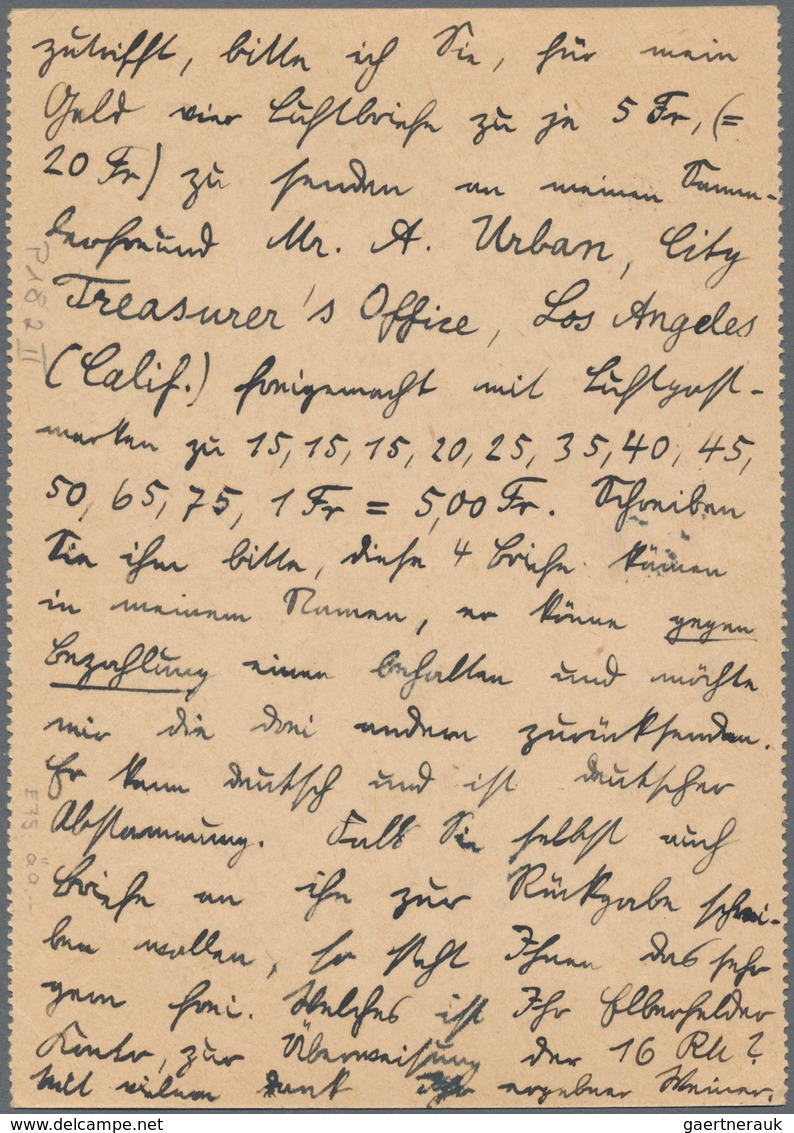 zutrifft, bitte ich Sie, für mein
Geld vier Luftbriefe zu je 5 Fr, (=
20 Fr) zu senden an meinen Samm-
lerfreund Mr. A. Urban, City
Treasurer's Office, Los Angeles
(Calif.) freigemacht mit Luftpost-
marken zu 15, 15, 15, 20, 25, 35, 40, 45,
50, 65, 75, 1 Fr = 5,00 Fr. Schreiben
Sie ihm bitte, diese 4 Briefe kämen
in meinem Namen, er könne gegen
Bezahlung einen behalten und möchte
mir die drei andern zurücksenden.
Er kann deutsch und ist deutscher
Abstammung. Falls Sie selbst auch
Briefe an ihn zur Rückgabe schrei-
ben wollen, so steht Ihnen das sehr
gern frei. Welches ist Ihr Elberfelder
Konto, zur Überweisung der 16 RM?
Mit vielem Dank Ihr ergebner Weiner.
P182 II
gaertnerauk